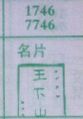 1746
7746
名片
王
下
山